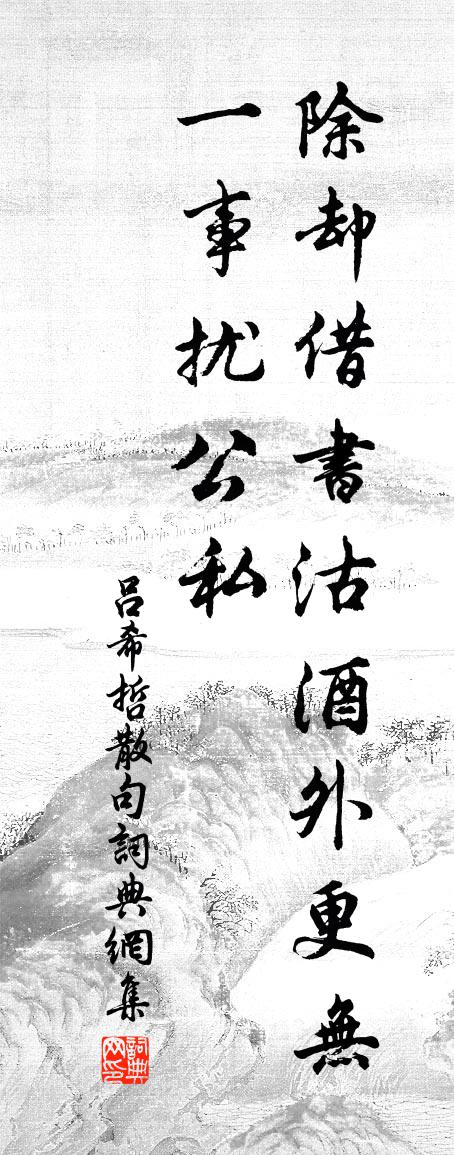 除却借書沽酒外更無
一事扰公私
呂希哲散句詞典網集
詞典
网印